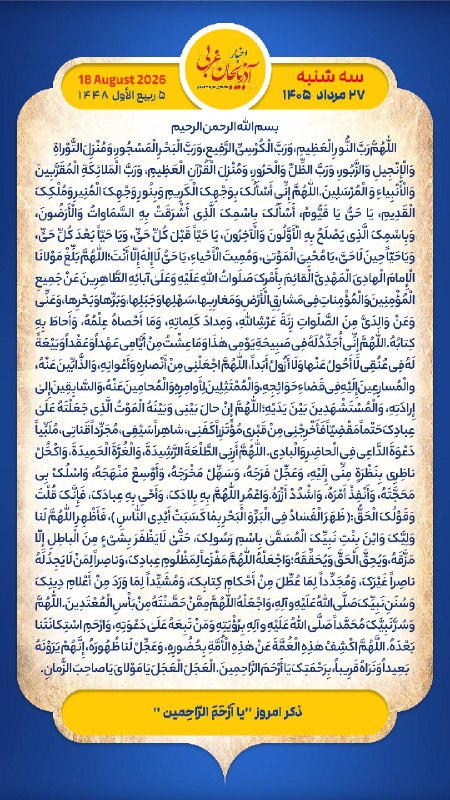 اخبار
آذربایجان غربی
سه شنبه
۲۷ مرداد ۱۴۰۵
18 August 2026
۵ ربیع الأول ۱۴۴۸
بسم الله الرحمن الرحیم
اَللّهُمَّ رَبَّ النُّورِ الْعَظیمِ، وَرَبَّ الْكُرْسِيِّ الرَّفیعِ، وَرَبَّ الْبَحْرِ الْمَسْجُورِ، وَمُنْزِلَ التَّوْراةِ
وَالْإِنْجیلِ وَالزَّبُورِ، وَرَبَّ الظِّلِّ وَالْحَرُورِ، وَمُنْزِلَ الْقُرْآنِ الْعَظیمِ، وَرَبَّ الْمَلائِكَةِ الْمُقَرَّبینَ
وَالْأَنْبِیاءِ وَالْمُرْسَلینَ. اَللّهُمَّ إِنّی أَسْأَلُكَ بِوَجْهِكَ الْكَریمِ، وَبِنُورِ وَجْهِكَ الْمُنیرِ، وَمُلْكِكَ
الْقَدیمِ، یا حَیُّ یا قَیُّومُ، أَسْأَلُكَ بِاسْمِكَ الَّذی أَشْرَقَتْ بِهِ السَّماواتُ وَالْأَرَضُونَ،
وَبِاسْمِكَ الَّذی یَصْلَحُ بِهِ الْأَوَّلُونَ وَالْآخِرُونَ، یا حَیّاً قَبْلَ كُلِّ حَیٍّ، وَیا حَیّاً بَعْدَ كُلِّ حَیٍّ،
وَیا حَیّاً حینَ لا حَیَّ، یا مُحْیِیَ الْمَوْتى، وَمُمیتَ الْأَحْیاءِ، یا حَیُّ لا إِلهَ إِلّا أَنْتَ؛ اَللّهُمَّ بَلِّغْ مَوْلانَا
الْإِمامَ الْهادِیَ الْمَهْدِیَّ الْقائِمَ بِأَمْرِكَ صَلَواتُ اللهِ عَلَیْهِ وَعَلى آبائِهِ الطّاهِرینَ عَنْ جَمیعِ
الْمُؤْمِنینَ وَالْمُؤْمِناتِ فی مَشارِقِ الْأَرْضِ وَمَغارِبِها، سَهْلِها وَجَبَلِها، وَبَرِّها وَبَحْرِها، وَعَنّی
وَعَنْ والِدَیَّ مِنَ الصَّلَواتِ زِنَةَ عَرْشِ اللهِ، وَمِدادَ كَلِماتِهِ، وَمَا أَحْصاهُ عِلْمُهُ، وَأَحاطَ بِهِ
كِتابُهُ. اَللّهُمَّ إِنّی أُجَدِّدُ لَهُ فی صَبیحَةِ یَوْمی هذا وَمَا عِشْتُ مِنْ أَیّامی عَهْداً وَعَقْداً وَبَیْعَةً
لَهُ فی عُنُقی لا أَحُولُ عَنْها وَلا أَزُولُ أَبَداً، اَللّهُمَّ اجْعَلْنی مِنْ أَنْصارِهِ وَأَعْوانِهِ، وَالذّابّینَ عَنْهُ،
وَالْمُسارِعینَ إِلَیْهِ فی قَضاءِ حَوائِجِهِ، وَالْمُمْتَثِلینَ لِأَوامِرِهِ وَالْمُحامینَ عَنْهُ، وَالسّابِقینَ إِلى
إِرادَتِهِ، وَالْمُسْتَشْهَدینَ بَیْنَ یَدَیْهِ؛ اَللّهُمَّ إِنْ حالَ بَیْنی وَبَیْنَهُ الْمَوْتُ الَّذی جَعَلْتَهُ عَلى
عِبادِكَ حَتْماً مَقْضِیّاً فَأَخْرِجْنی مِنْ قَبْری مُؤْتَزِراً كَفَنی، شاهِراً سَیْفی، مُجَرِّداً قَناتی، مُلَبِّیاً
دَعْوَةَ الدّاعی فِی الْحاضِرِ وَالْبادی. اَللّهُمَّ أَرِنِی الطَّلْعَةَ الرَّشیدَةَ، وَالْغُرَّةَ الْحَمیدَةَ، وَاكْحُلْ
ناظِری بِنَظْرَةٍ مِنّی إِلَیْهِ، وَعَجِّلْ فَرَجَهُ، وَسَهِّلْ مَخْرَجَهُ، وَأَوْسِعْ مَنْهَجَهُ، وَاسْلُكْ بی
مَحَجَّتَهُ، وَأَنْفِذْ أَمْرَهُ، وَاشْدُدْ أَزْرَهُ، وَاعْمُرِ اللّهُمَّ بِهِ بِلادَكَ، وَأَحْیِ بِهِ عِبادَكَ، فَإِنَّكَ قُلْتَ
وَقَوْلُكَ الْحَقُّ: (ظَهَرَ الْفَسادُ فِی الْبَرِّ وَالْبَحْرِ بِما كَسَبَتْ أَیْدِی النّاسِ)، فَأَظْهِرِ اللّهُمَّ لَنا
وَلِیَّكَ وَابْنَ بِنْتِ نَبِیِّكَ الْمُسَمّى بِاسْمِ رَسُولِكَ، حَتّى لا یَظْفَرَ بِشَیْءٍ مِنَ الْباطِلِ إِلّا
مَزَّقَهُ، وَیُحِقَّ الْحَقَّ وَیُحَقِّقَهُ؛ وَاجْعَلْهُ اللّهُمَّ مَفْزَعاً لِمَظْلُومِ عِبادِكَ، وَناصِراً لِمَنْ لا یَجِدُ لَهُ
ناصِراً غَیْرَكَ، وَمُجَدِّداً لِما عُطِّلَ مِنْ أَحْكامِ كِتابِكَ، وَمُشَیِّداً لِما وَرَدَ مِنْ أَعْلامِ دینِكَ
وَسُنَنِ نَبِیِّكَ صَلَّى اللهُ عَلَیْهِ وَآلِهِ، وَاجْعَلْهُ اللّهُمَّ مِمَّنْ حَصَّنْتَهُ مِنْ بَأْسِ الْمُعْتَدینَ. اَللّهُمَّ
وَسُرَّ نَبِیَّكَ مُحَمَّداً صَلَّى اللهُ عَلَیْهِ وَآلِهِ بِرُؤْیَتِهِ، وَمَنْ تَبِعَهُ عَلى دَعْوَتِهِ، وَارْحَمِ اسْتِكانَتَنا
بَعْدَهُ. اَللّهُمَّ اكْشِفْ هذِهِ الْغُمَّةَ عَنْ هذِهِ الْأُمَّةِ بِحُضُورِهِ، وَعَجِّلْ لَنا ظُهُورَهُ، إِنَّهُمْ یَرَوْنَهُ
بَعیداً وَنَراهُ قَریباً، بِرَحْمَتِكَ یا أَرْحَمَ الرّاحِمینَ. الْعَجَلَ الْعَجَلَ یا مَوْلایَ یا صاحِبَ الزَّمانِ.
ذکر امروز "یا أَرْحَمَ الرّاحِمین"